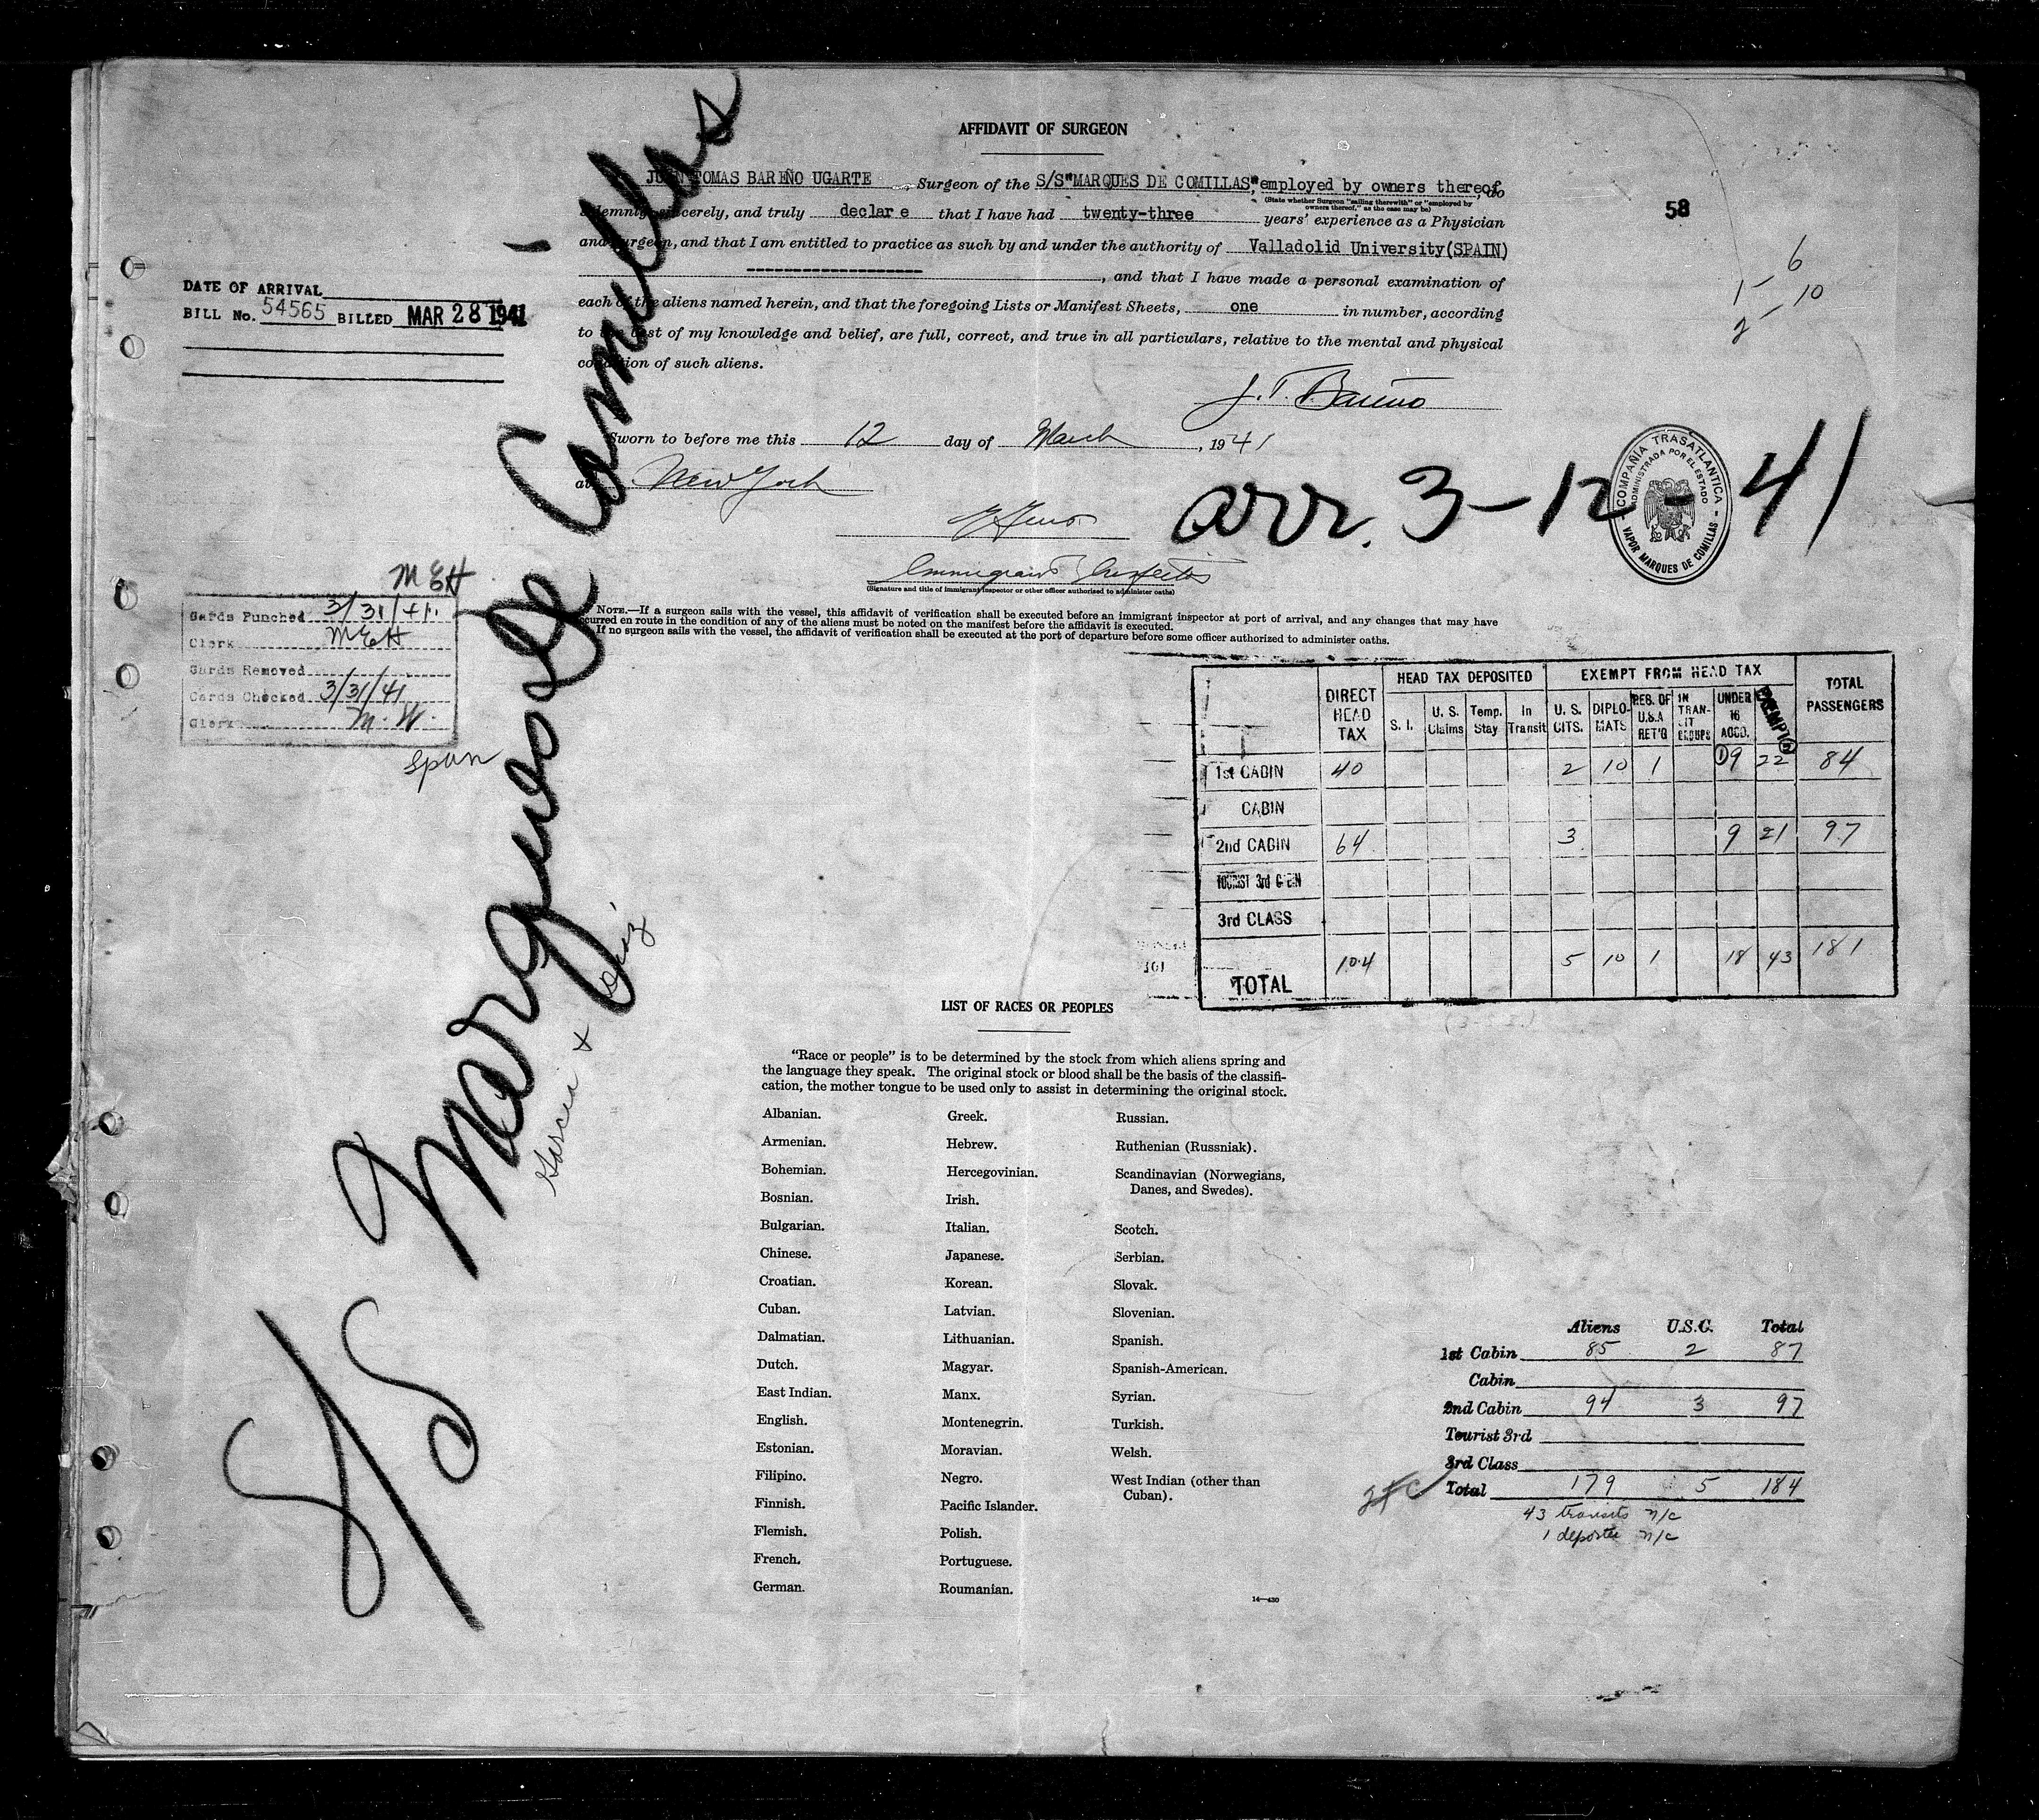 AFFIDAVIT OF SURGEON
JUAN TOMAS BAREÑO UGARTE, Surgeon of the S/S "MARQUES DE COMILLAS", employed by owners thereof, do
(State whether Surgeon "sailing therewith" or "employed by
owners thereof," as the case may be)
solemnly, sincerely, and truly declar e that I have had twenty-three years' experience as a Physician
and Surgeon, and that I am entitled to practice as such by and under the authority of Valladolid University(SPAIN)
------------------, and that I have made a personal examination of
each of the aliens named herein, and that the foregoing Lists or Manifest Sheets, one in number, according
to the best of my knowledge and belief, are full, correct, and true in all particulars, relative to the mental and physical
condition of such aliens.
J. T. Bareño
Sworn to before me this 12 day of March, 1941
at New York
Immigrant Inspector
(Signature and title of immigrant inspector or other officer authorized to administer oaths)
NOTE.—If a surgeon sails with the vessel, this affidavit of verification shall be executed before an immigrant inspector at port of arrival, and any changes that may have
occurred en route in the condition of any of the aliens must be noted on the manifest before the affidavit is executed.
If no surgeon sails with the vessel, the affidavit of verification shall be executed at the port of departure before some officer authorized to administer oaths.
58
6
1 - 10
2
DATE OF ARRIVAL
BILL No. 54565 BILLED MAR 28 1941
arr. 3-12 41
COMPAÑIA TRASATLANTICA
ADMINISTRADA POR EL ESTADO
- VAPOR MARQUES DE COMILLAS -
MEH
Cards Punched 3/31/41
Clerk MEH
Cards Removed
Cards Checked 3/31/41
Clerk M. W.
Span
S/S Marques de Comillas
Garcia & Diaz
DIRECT HEAD TAX HEAD TAX DEPOSITED EXEMPT FROM HEAD TAX TOTAL PASSENGERS
S. I. U. S. Claims Temp. Stay In Transit U. S. CITS. DIPLOMATS RES. OF U.S.A RET'G IN TRANSIT GROUPS UNDER 16 ACCO. EXEMPT
1st CABIN 40 2 10 1 ①9 22 84
CABIN
2nd CABIN 64 3 9 21 97
TOURIST 3rd CABIN
3rd CLASS
TOTAL 104 5 10 1 18 43 181
LIST OF RACES OR PEOPLES
"Race or people" is to be determined by the stock from which aliens spring and
the language they speak. The original stock or blood shall be the basis of the classifi-
cation, the mother tongue to be used only to assist in determining the original stock.
Albanian.
Armenian.
Bohemian.
Bosnian.
Bulgarian.
Chinese.
Croatian.
Cuban.
Dalmatian.
Dutch.
East Indian.
English.
Estonian.
Filipino.
Finnish.
Flemish.
French.
German.
Greek.
Hebrew.
Hercegovinian.
Irish.
Italian.
Japanese.
Korean.
Latvian.
Lithuanian.
Magyar.
Manx.
Montenegrin.
Moravian.
Negro.
Pacific Islander.
Polish.
Portuguese.
Roumanian.
Russian.
Ruthenian (Russniak).
Scandinavian (Norwegians,
Danes, and Swedes).
Scotch.
Serbian.
Slovak.
Slovenian.
Spanish.
Spanish-American.
Syrian.
Turkish.
Welsh.
West Indian (other than
Cuban).
14—430
Aliens U.S.C. Total
1st Cabin 85 2 87
Cabin
2nd Cabin 94 3 97
Tourist 3rd
3rd Class
Total 179 5 184
43 transits n/c
1 deportee n/c